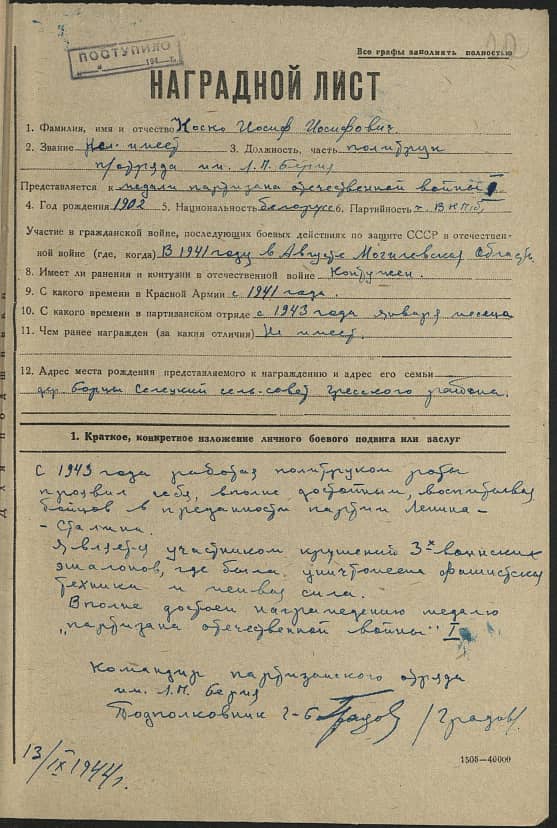 ПОСТУПИЛО
194 г.
Все графы заполнять полностью
НАГРАДНОЙ ЛИСТ
1. Фамилия, имя и отчество Коско Иосиф Иосифович.
2. Звание Не имеет 3. Должность, часть политрук
п/отряда им. Л.П. Берия
Представляется к медали партизана отечественной войны I
4. Год рождения 1902 5. Национальность белорус 6. Партийность ч. ВКП(б)
Участие в гражданской войне, последующих боевых действиях по защите СССР в отечествен-
ной войне (где, когда) В 1941 году в Августе Могилевская область
8. Имеет ли ранения и контузии в отечественной войне Контужен.
9. С какого времени в Красной Армии с 1941 года.
10. С какого времени в партизанском отряде с 1943 года января месяца
11. Чем ранее награжден (за какия отличия) Не имеет.
12. Адрес места рождения представляемого к награждению и адрес его семьи
дер. Борцы Селецкий сель-совет Гресского района.
1. Краткое, конкретное изложение личного боевого подвига или заслуг
С 1943 года работая политруком роты
проявил себя, вполне достойным, воспитывая
бойцов в преданности партии Ленина-
- Сталина.
Является участником крушений 3х воинских
эшалонов, где была уничтожена фашистская
техника и живая сила.
Вполне достоен награждению медалю
"партизана отечественной войны" I
Командир партизанского отряда
им. Л.П. Берия
Подполковник г-б Градов /Градов/
13/IX 1944 г.
1505—40000